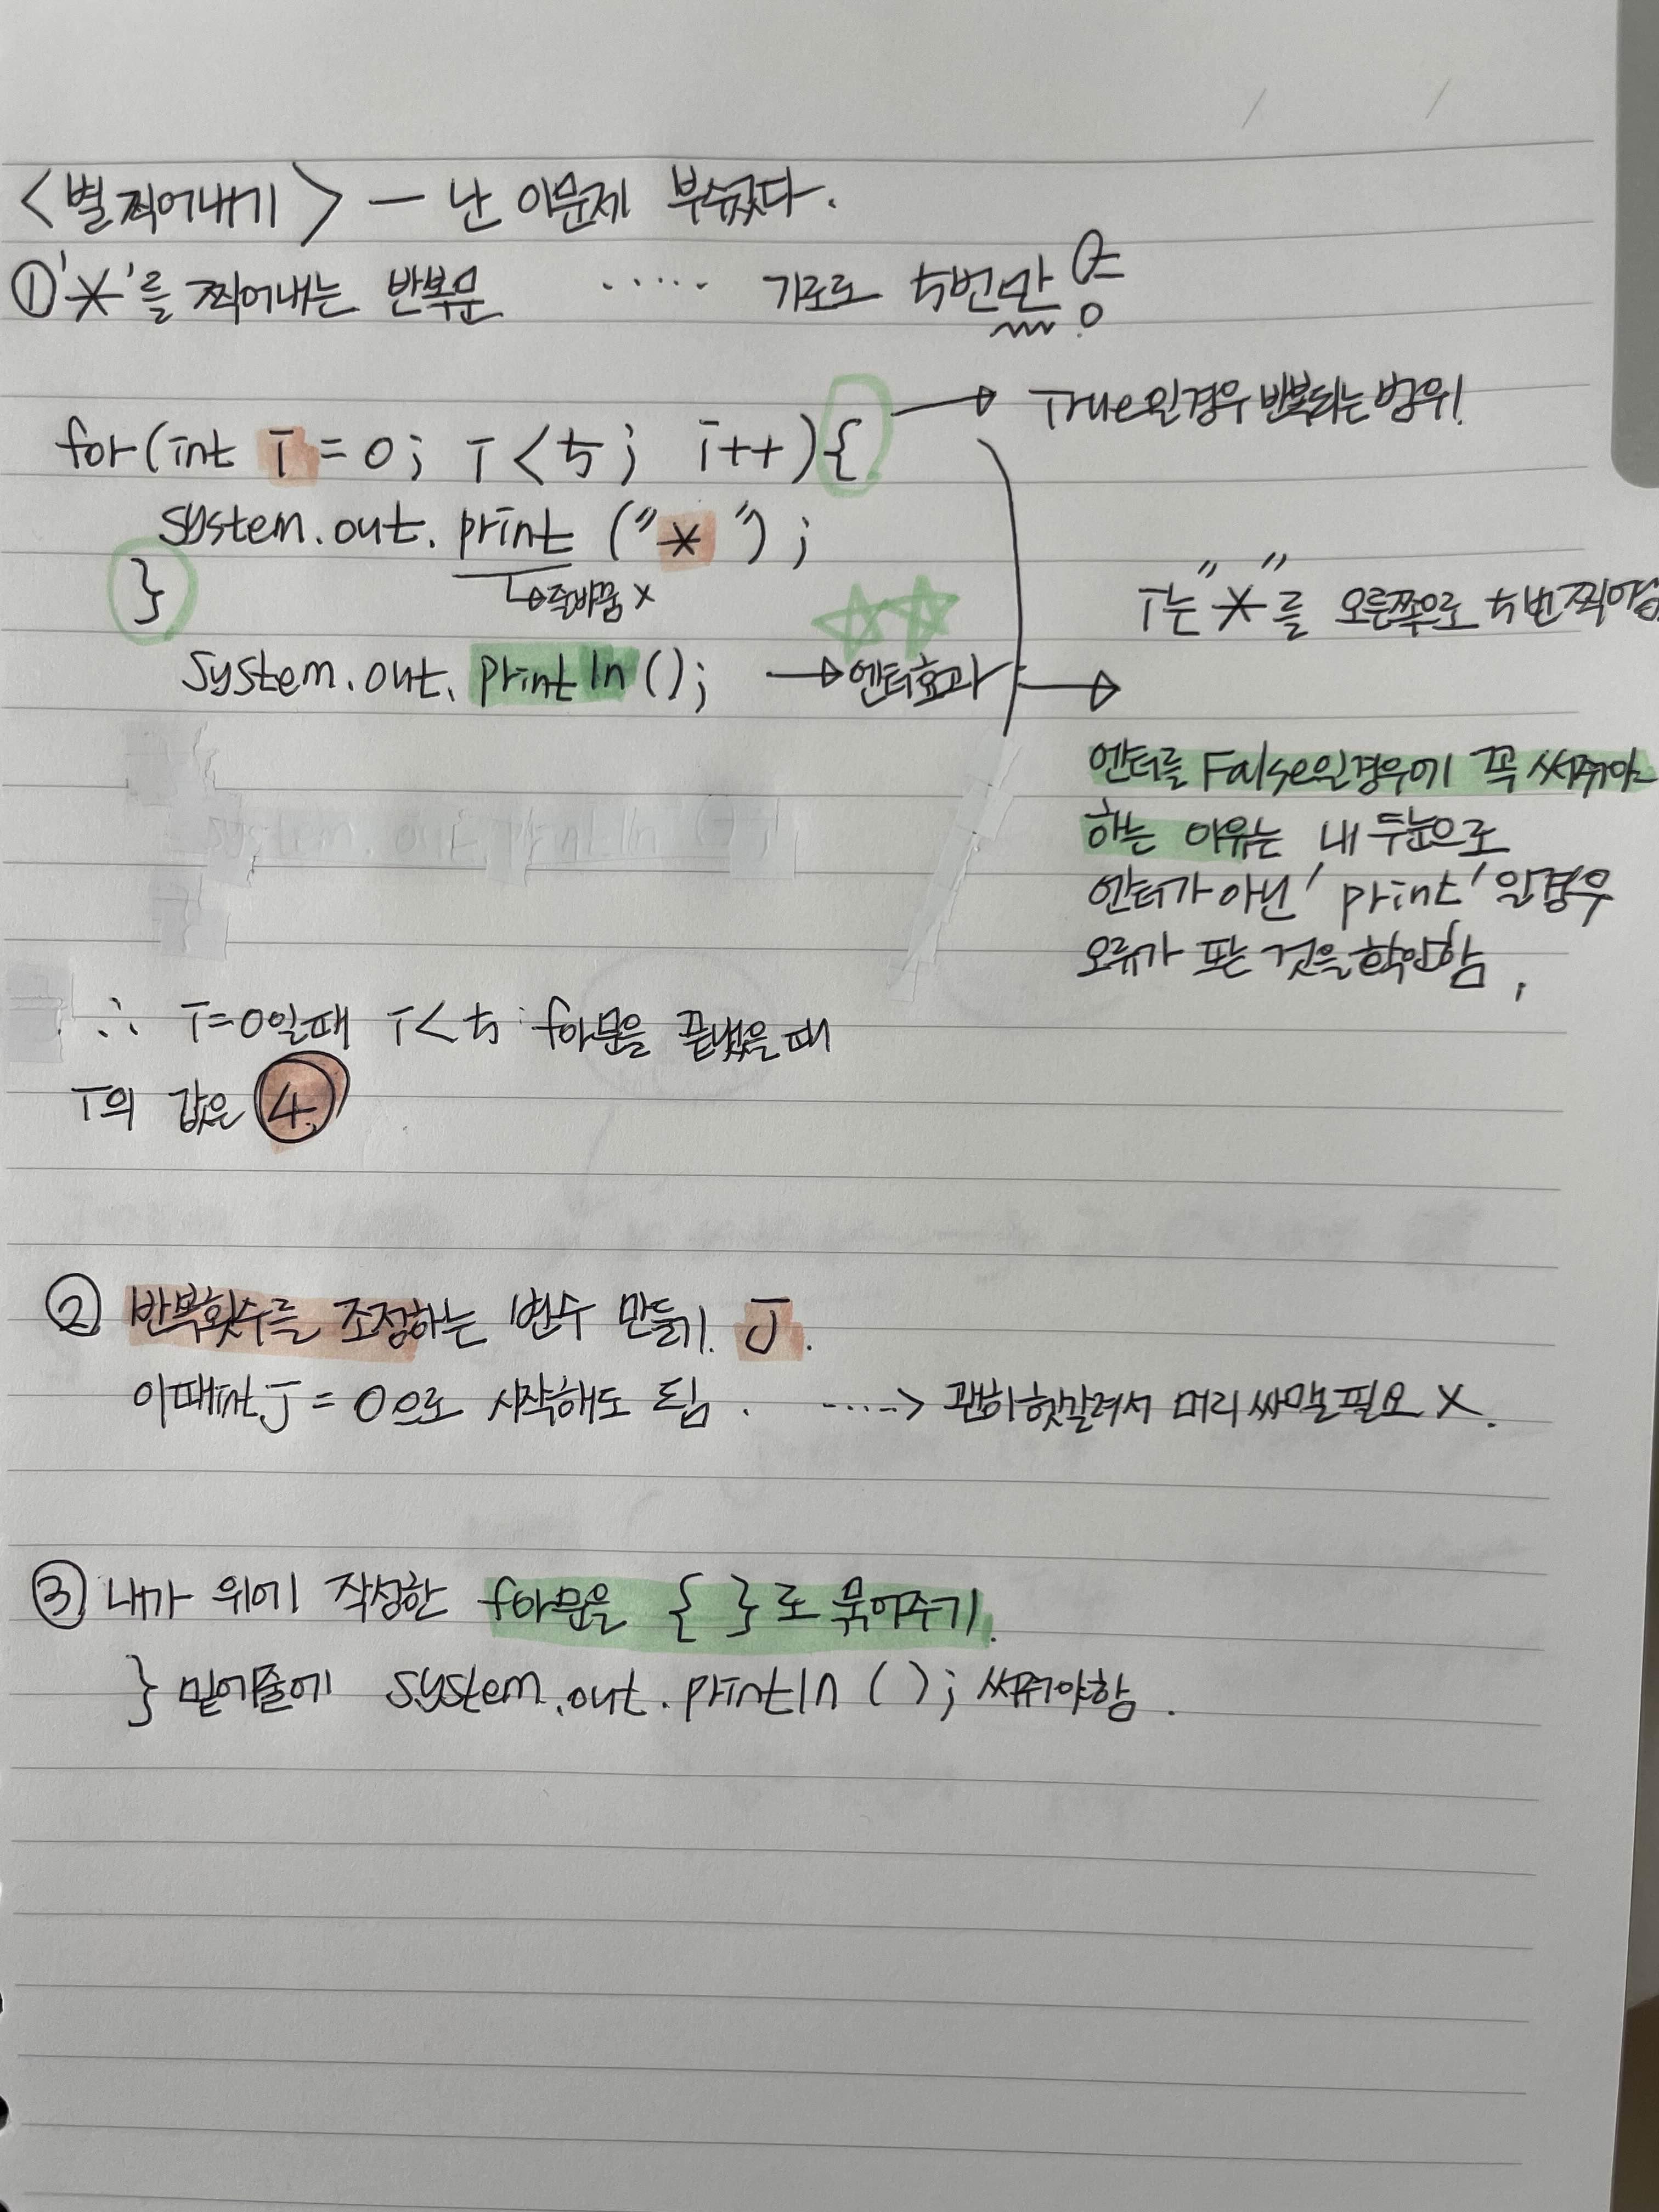 <별 찍어내기> — 난 이문제 부쉈다.
① '*'를 찍어내는 반복문 ..... 가로로 5번만
for(int i = 0; i < 5; i++){ → True일경우 반복되는 범위!
system.out.print ("*");
}
↳줄바꿈 x
i는 "*"를 오른쪽으로 5번 찍어
system.out.println(); → 엔터효과 →
엔터를 False일경우에 꼭 써줘야
하는 이유는 내 두눈으로
엔터가 아닌 'print'일경우
오류가 뜨는 것을 확인함.
∴ i=0일때 i<5 for문을 끝냈을때
i의 값은 ④
② 반복횟수를 조정하는 변수 만들기. J.
이때 int J = 0으로 시작해도 됨. ....> 괜히 헷갈려서 머리싸맬필요 X.
③ 내가 위에 작성한 for문을 { }로 묶어주기.
} 밑에줄에 system.out.println (); 써줘야함.